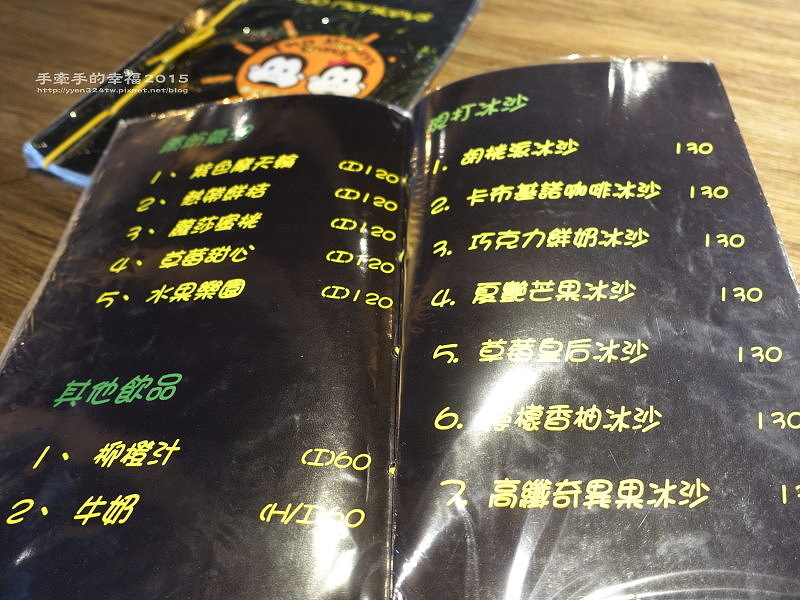 手牽手的幸福2015
http://yyen324tw.pixnet.net/blog
1、紫色摩天輪 (I)120
2、熱帶鮮桔 (I)120
3、蘿莎蜜桃 (I)120
4、草莓甜心 (I)120
5、水果樂園 (I)120
其他飲品
1、柳橙汁 (I)60
2、牛奶 (H/I)60
現打冰沙
1. 胡桃派冰沙 130
2. 卡布基諾咖啡冰沙 130
3. 巧克力鮮奶冰沙 130
4. 夏艷芒果冰沙 130
5. 草莓皇后冰沙 130
6. 檸檬香柚冰沙 130
7. 高纖奇異果冰沙